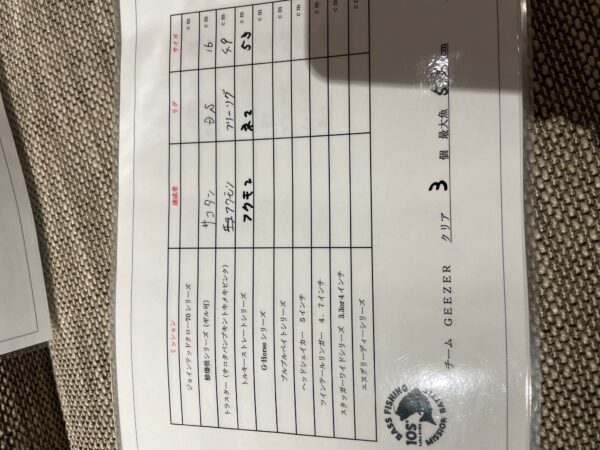 ミッション 達成者 リグ サイズ
ジョインテッドクロー70シリーズ cm
鮮度根シリーズ（ギル可） サコタン DS 16 cm
トラスター（サコタパンプキントキメキピンク） フクモン フリーリグ 49 cm
トルキーストレートシリーズ フクモン ネコ 53 cm
G-Horseシリーズ cm
ブルブルベイトシリーズ cm
ヘッドシェイカー 5インチ cm
ツインテールリンガー 4.7インチ cm
スタッガーワイドシリーズ 3.3or4インチ cm
エヌグリーディーシリーズ cm
チーム GEEZER クリア 3 個 最大魚 cm
BASS FISHING
105
MISSION BATTLE